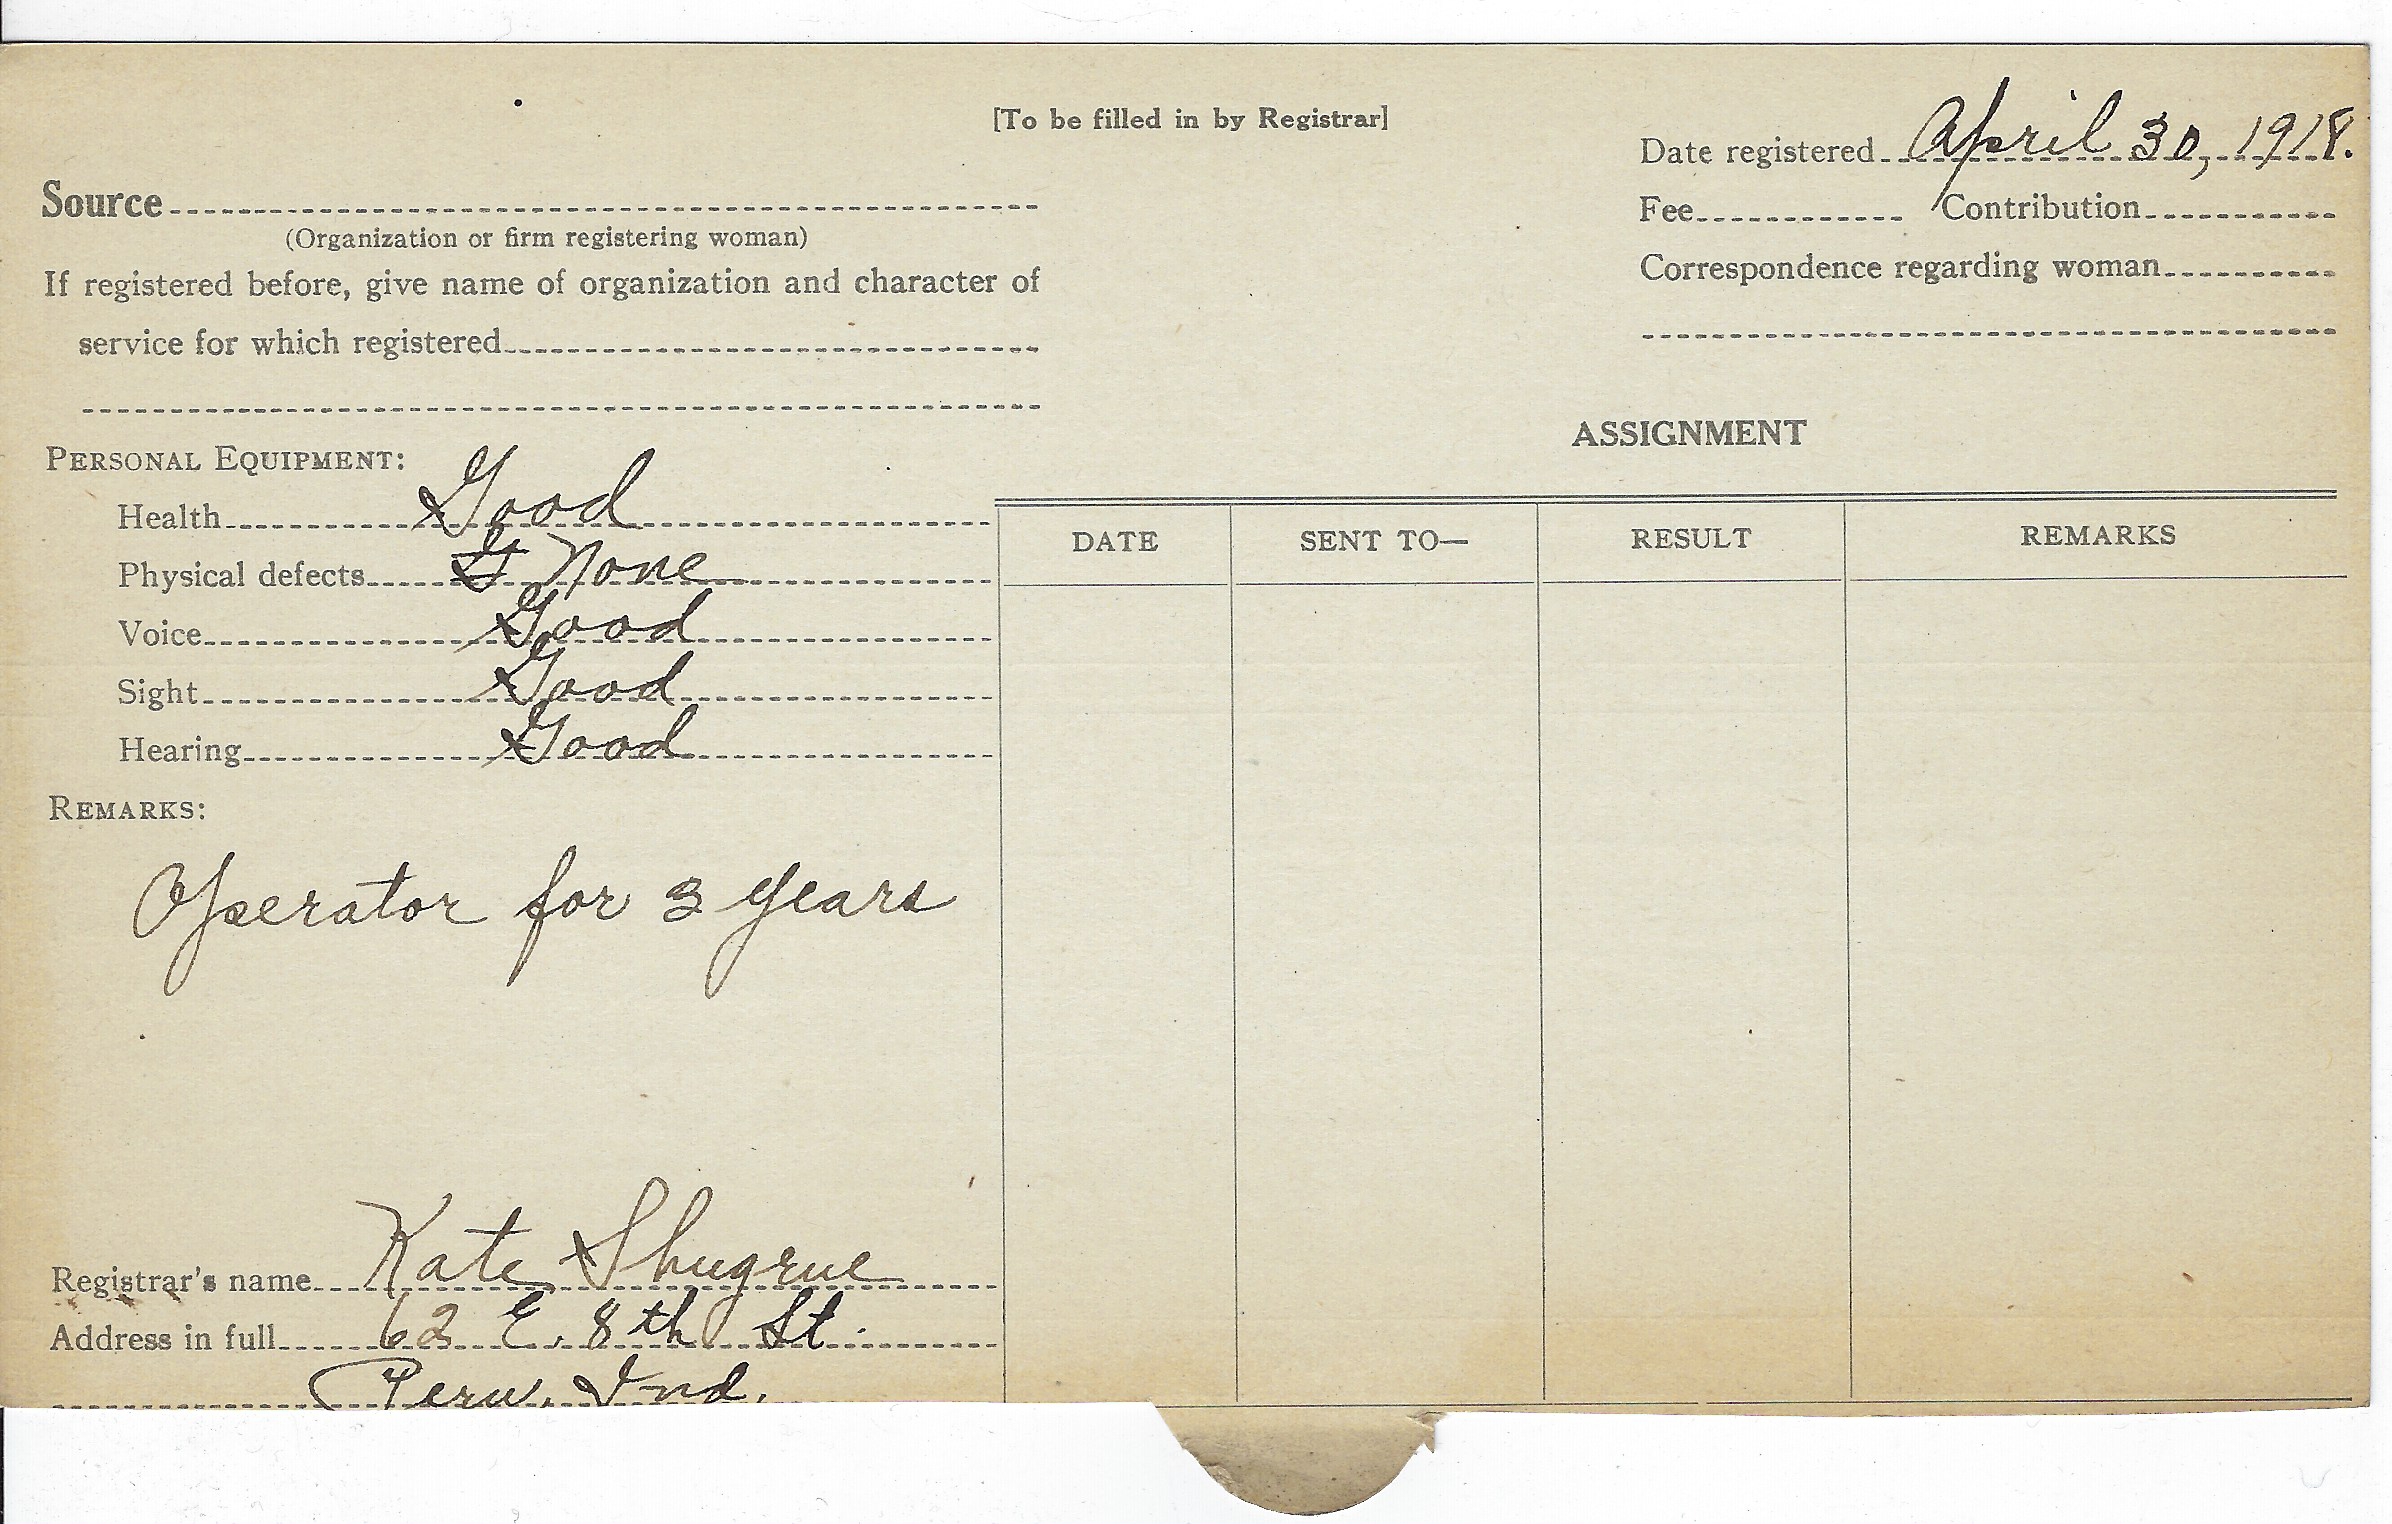 [To be filled in by Registrar]
Date registered April 30, 1918.
Source
(Organization or firm registering woman)
Fee Contribution
If registered before, give name of organization and character of
service for which registered
Correspondence regarding woman
PERSONAL EQUIPMENT:
Health Good
Physical defects G None
Voice Good
Sight Good
Hearing Good
REMARKS:
Operator for 3 years
Registrar's name Kate Shugrue
Address in full 62 E. 8th St.
Peru, Ind.
ASSIGNMENT
DATE SENT TO— RESULT REMARKS